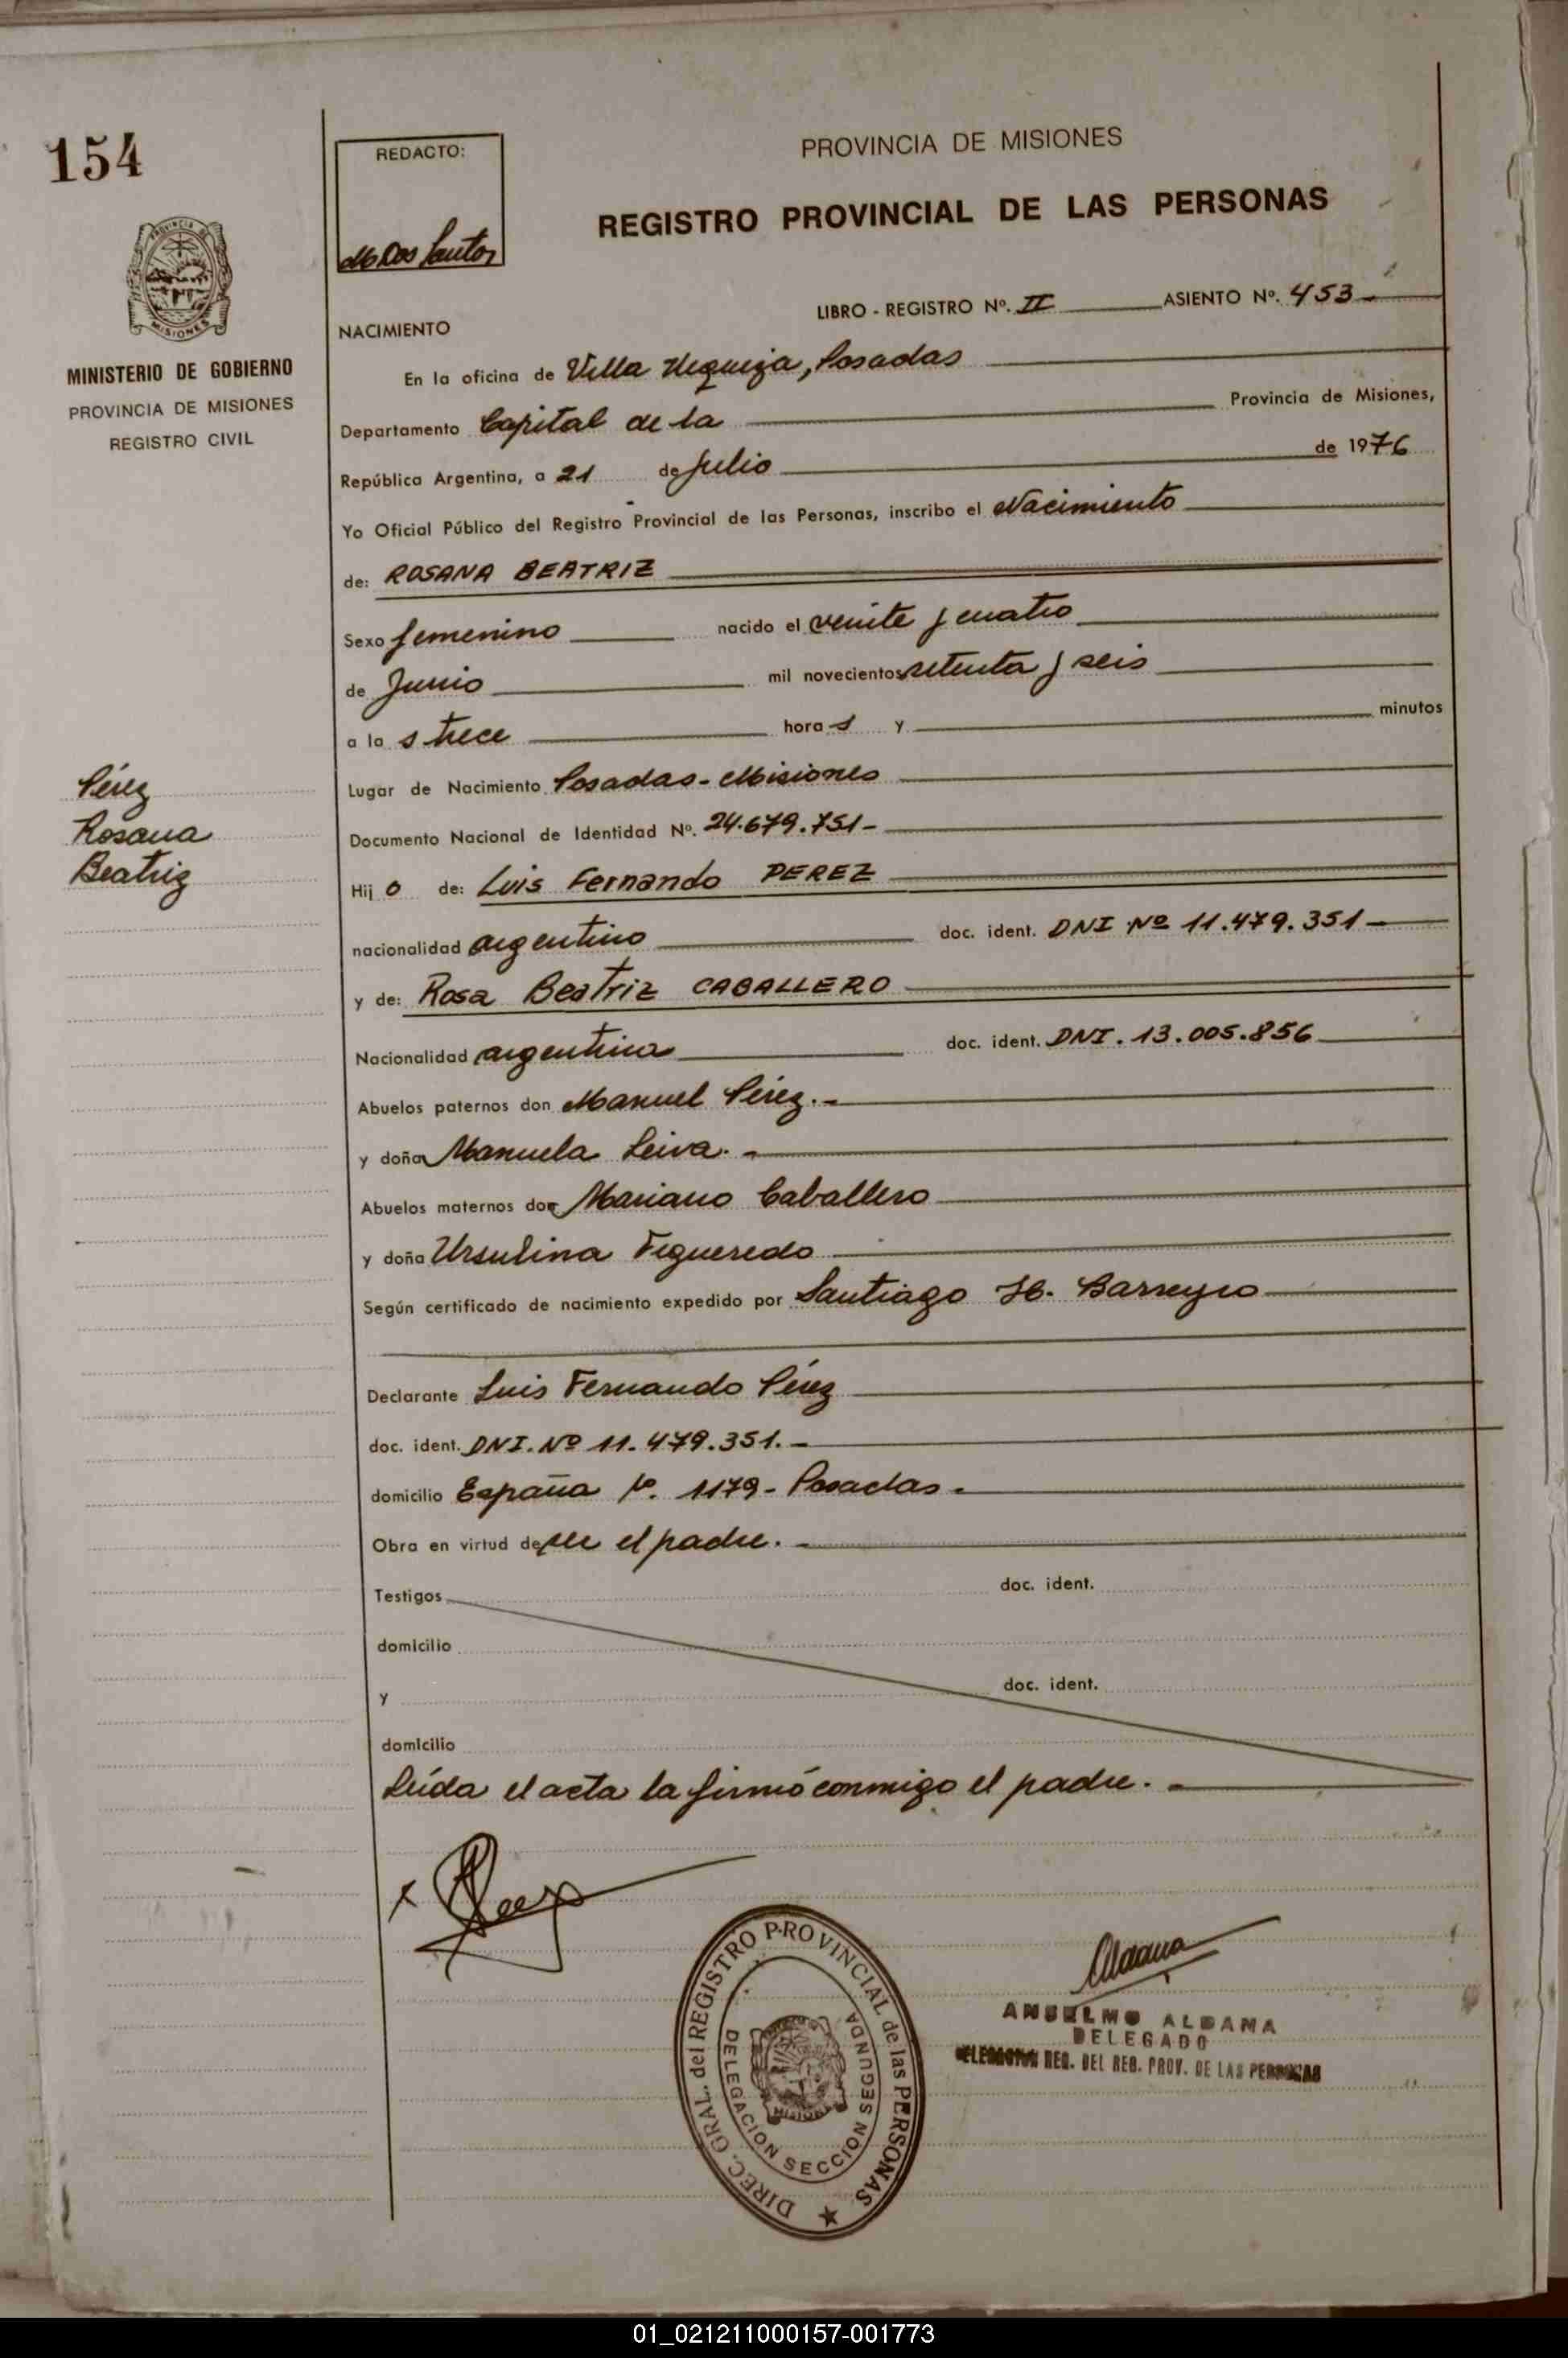 154
REDACTO:
M Dos Santos
PROVINCIA DE MISIONES
REGISTRO PROVINCIAL DE LAS PERSONAS
PROVINCIA DE
MISIONES
MINISTERIO DE GOBIERNO
PROVINCIA DE MISIONES
REGISTRO CIVIL
LIBRO - REGISTRO Nº. II ASIENTO Nº. 453-
NACIMIENTO
En la oficina de Villa Urquiza, Posadas
Departamento Capital de la Provincia de Misiones,
República Argentina, a 21 de Julio de 1976
Yo Oficial Público del Registro Provincial de las Personas, inscribo el Nacimiento
de: ROSANA BEATRIZ
Sexo femenino nacido el veinte y cuatro
de Junio mil novecientos setenta y seis
a la s trece hora s y minutos
Lugar de Nacimiento Posadas - Misiones
Pérez
Rosana
Beatriz
Documento Nacional de Identidad Nº. 24.679.751-
Hij o de: Luis Fernando PEREZ
nacionalidad argentino doc. ident. DNI Nº 11.479.351-
y de: Rosa Beatriz CABALLERO
Nacionalidad argentina doc. ident. DNI. 13.005.856
Abuelos paternos don Manuel Pérez.-
y doña Manuela Leiva.-
Abuelos maternos don Mariano Caballero
y doña Ursulina Figueredo
Según certificado de nacimiento expedido por Santiago H. Barreyro
Declarante Luis Fernando Pérez
doc. ident. DNI. Nº 11.479.351.-
domicilio España Nº. 1179- Posadas.
Obra en virtud de ser el padre.-
Testigos doc. ident.
domicilio
y doc. ident.
domicilio
Leída el acta la firmó conmigo el padre.-
x
Aldana
ANSELMO ALDANA
DELEGADO
DELEGACION REG. DEL REG. PROV. DE LAS PERSONAS
DIREC. GRAL. del REGISTRO PROVINCIAL de las PERSONAS
DELEGACION SECCION SEGUNDA
MISIONES
01_021211000157-001773